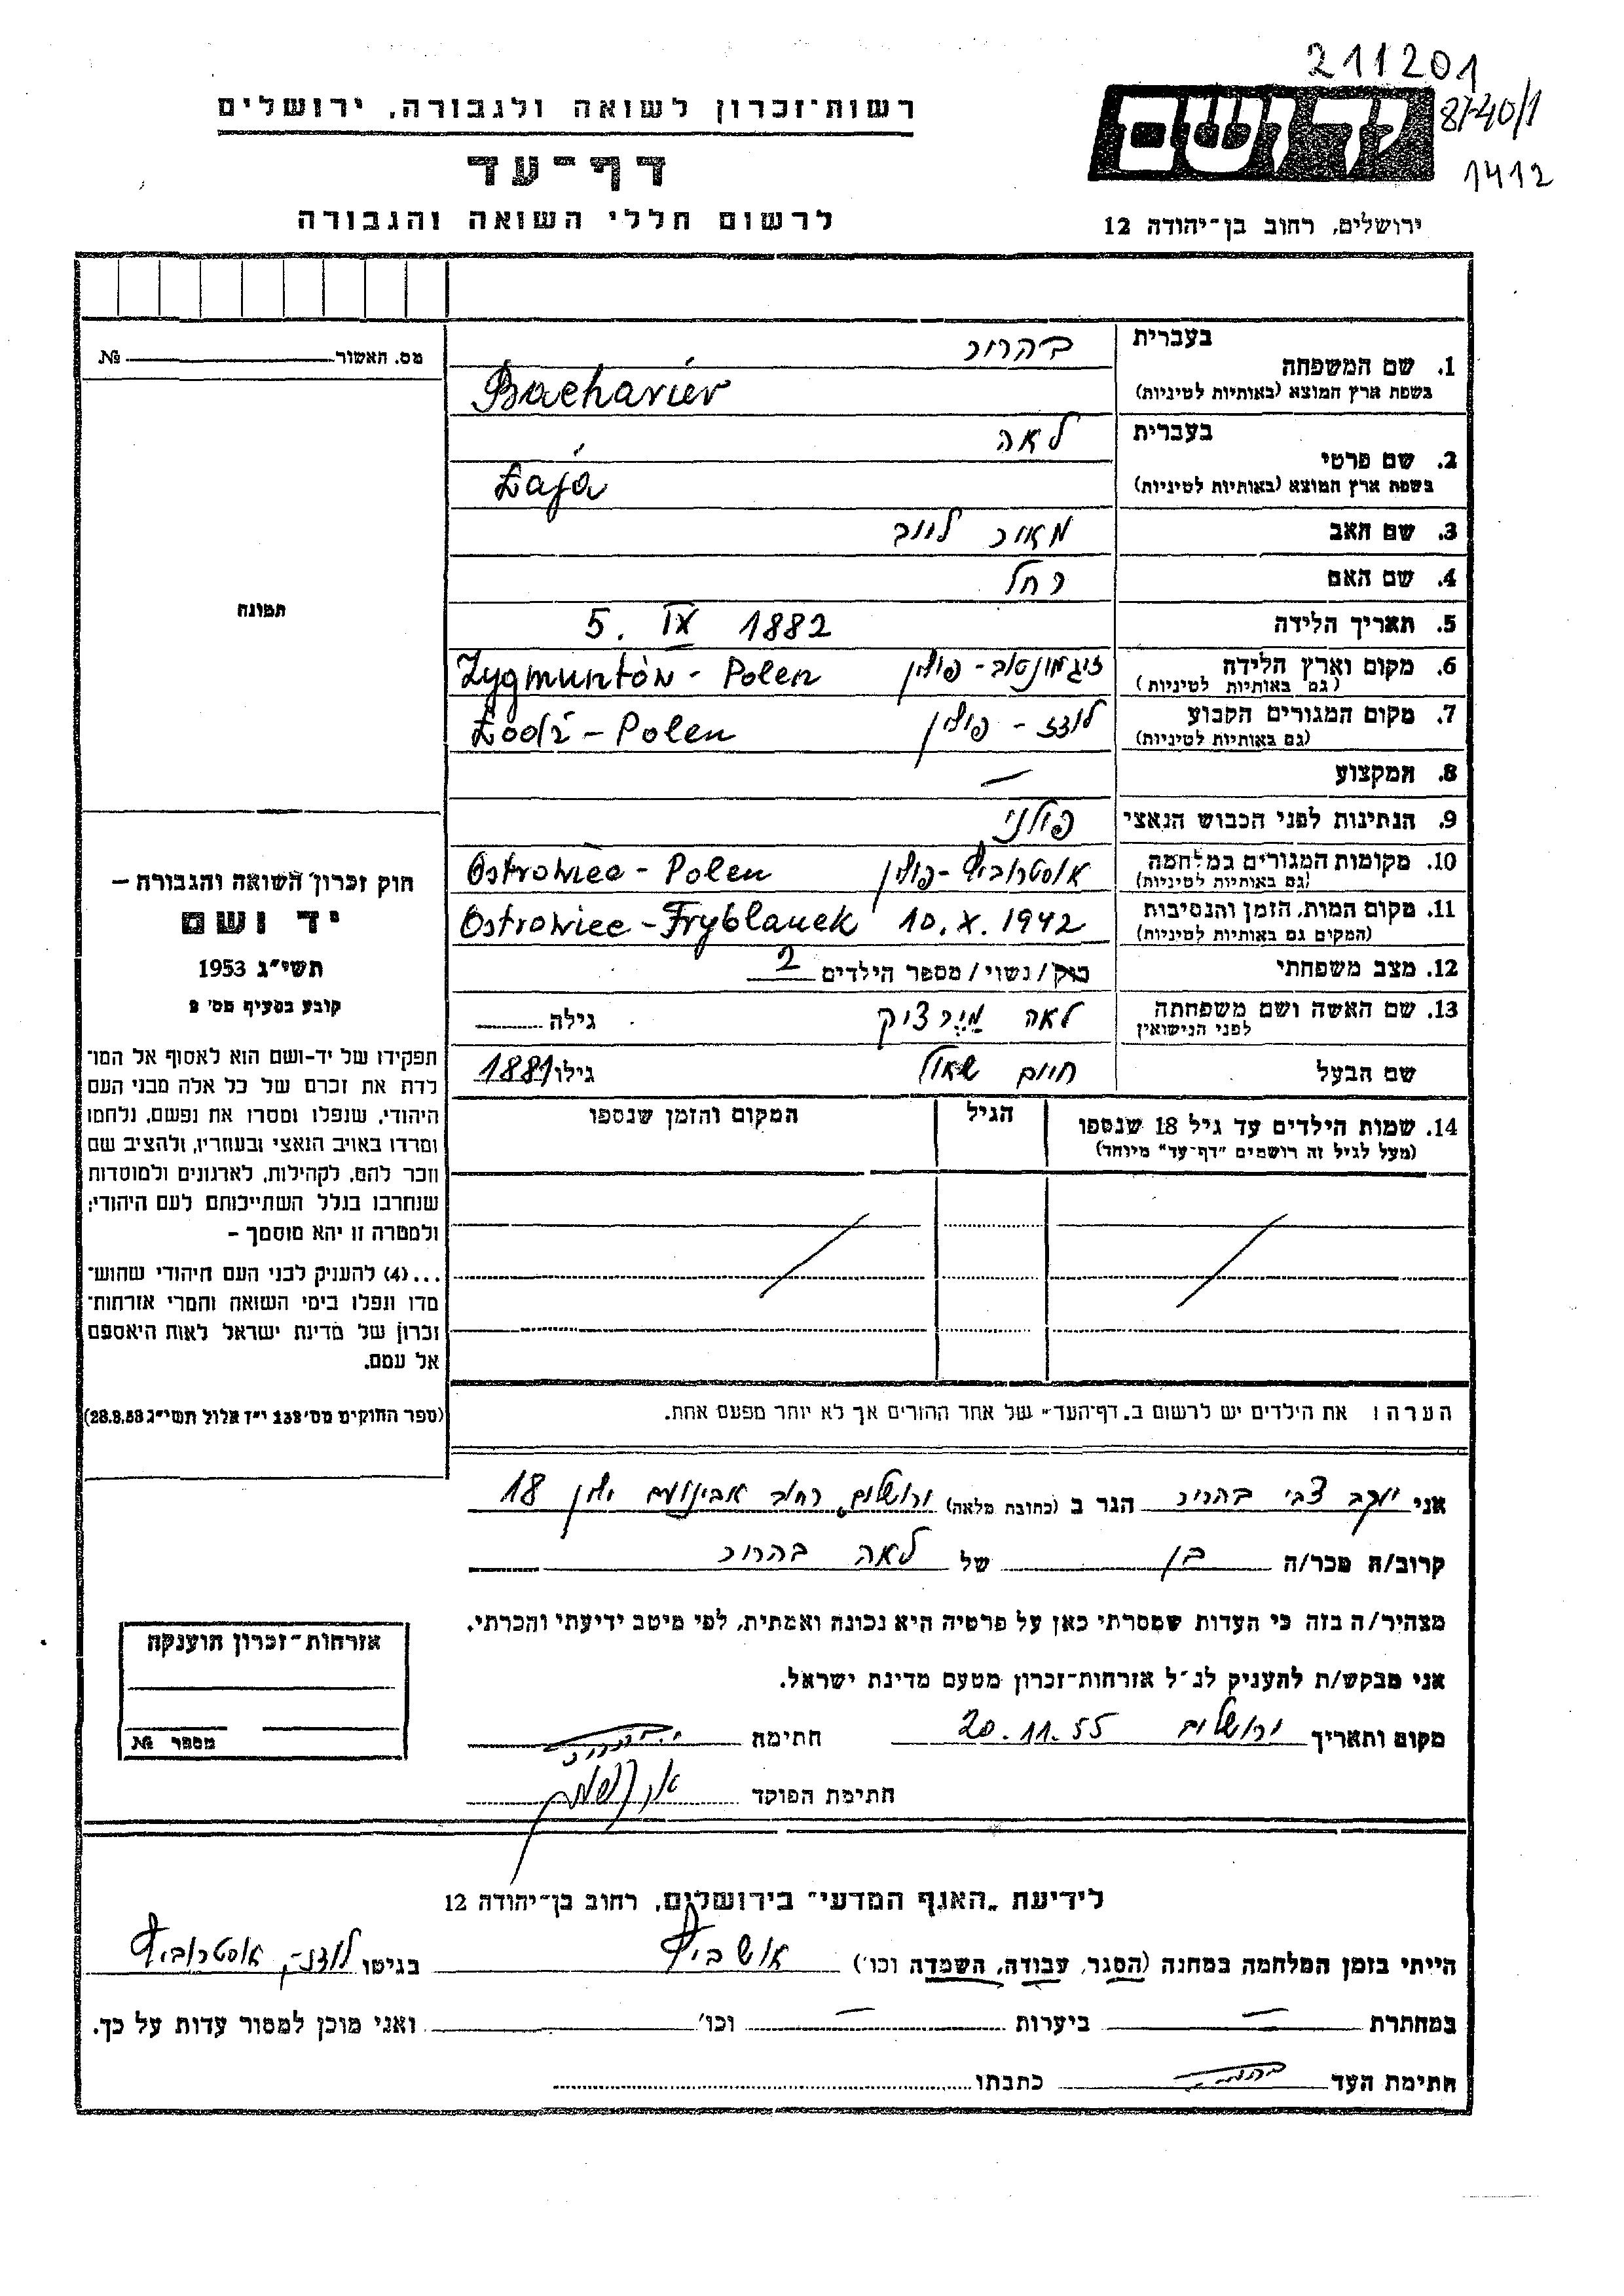 211201
8/-40/1
1412
רשות־זכרון לשואה ולגבורה, ירושלים
דף־עד
לרשום חללי השואה והגבורה
ירושלים, רחוב בן־יהודה 12
מס. האשור № 
1. שם המשפחה
בעברית בהרוו
בשפת ארץ המוצא (באותיות לטיניות) Bacharier
2. שם פרטי
בעברית לאה
בשפת ארץ המוצא (באותיות לטיניות) Łaja
3. שם האב מאיר
4. שם האם רחל
5. תאריך הלידה 5. IX 1882
6. מקום וארץ הלידה זיגמונטוב - פולין Zygmuntów - Polen
(גם באותיות לטיניות)
7. מקום המגורים הקבוע לודז - פולין Łódź - Polen
(גם באותיות לטיניות)
8. המקצוע —
9. הנתינות לפני הכבוש הנאצי פולני
10. מקומות המגורים במלחמה אוסטרוביץ - פולין Ostrowiec - Polen
(גם באותיות לטיניות)
11. מקום המות, הזמן והנסיבות Ostrowiec - Tryblanek 10. X. 1942
(המקום גם באותיות לטיניות)
12. מצב משפחתי רוק / נשוי / מספר הילדים 2
13. שם האשה ושם משפחתה לאה גילה
לפני הנישואין
שם הבעל חיים שאול גילו 1881
14. שמות הילדים עד גיל 18 שנספו הגיל המקום והזמן שנספו
(מעל לגיל זה רושמים "דף־עד" מיוחד)
הערה: את הילדים יש לרשום ב„דף־העד" של אחד ההורים אך לא יותר מפעם אחת.
תמונה
חוק זכרון השואה והגבורה —
יד ושם
תשי"ג 1953
קובע בסעיף מס' 2
תפקידו של יד־ושם הוא לאסוף אל המו־
לדת את זכרם של כל אלה מבני העם
היהודי, שנפלו ומסרו את נפשם, נלחמו
ומרדו באויב הנאצי ובעוזריו, ולהציב שם
וזכר להם, לקהילות, לארגונים ולמוסדות
שנחרבו בגלל השתייכותם לעם היהודי;
ולמטרה זו יהא מוסמך —
...(4) להעניק לבני העם היהודי שהוש־
מדו ונפלו בימי השואה והמרי אזרחות־
זכרון של מדינת ישראל לאות היאספם
אל עמם.
(ספר החוקים מס' 132 י"ז אלול תשי"ג 28.8.53)
אני יעקב צבי הגר ב (כתובת מלאה) ירושלים, רחוב אבינועם ילין 18
קרוב/ה מכר/ה בן של לאה
מצהיר/ה בזה כי העדות שמסרתי כאן על פרטיה היא נכונה ואמתית, לפי מיטב ידיעתי והכרתי.
אני מבקש/ת להעניק לנ"ל אזרחות־זכרון מטעם מדינת ישראל.
מקום ותאריך ירושלים 20.11.55 חתימה
חתימת הפוקד
אזרחות־זכרון הוענקה
מספר №
לידיעת „האגף המדעי" בירושלים, רחוב בן־יהודה 12
הייתי בזמן המלחמה במחנה (הסגר, עבודה, השמדה וכו') אושביץ בגיטו אוסטרוביץ
במחתרת — ביערות — וכו' ואני מוכן למסור עדות על כך.
חתימת העד כתבתו